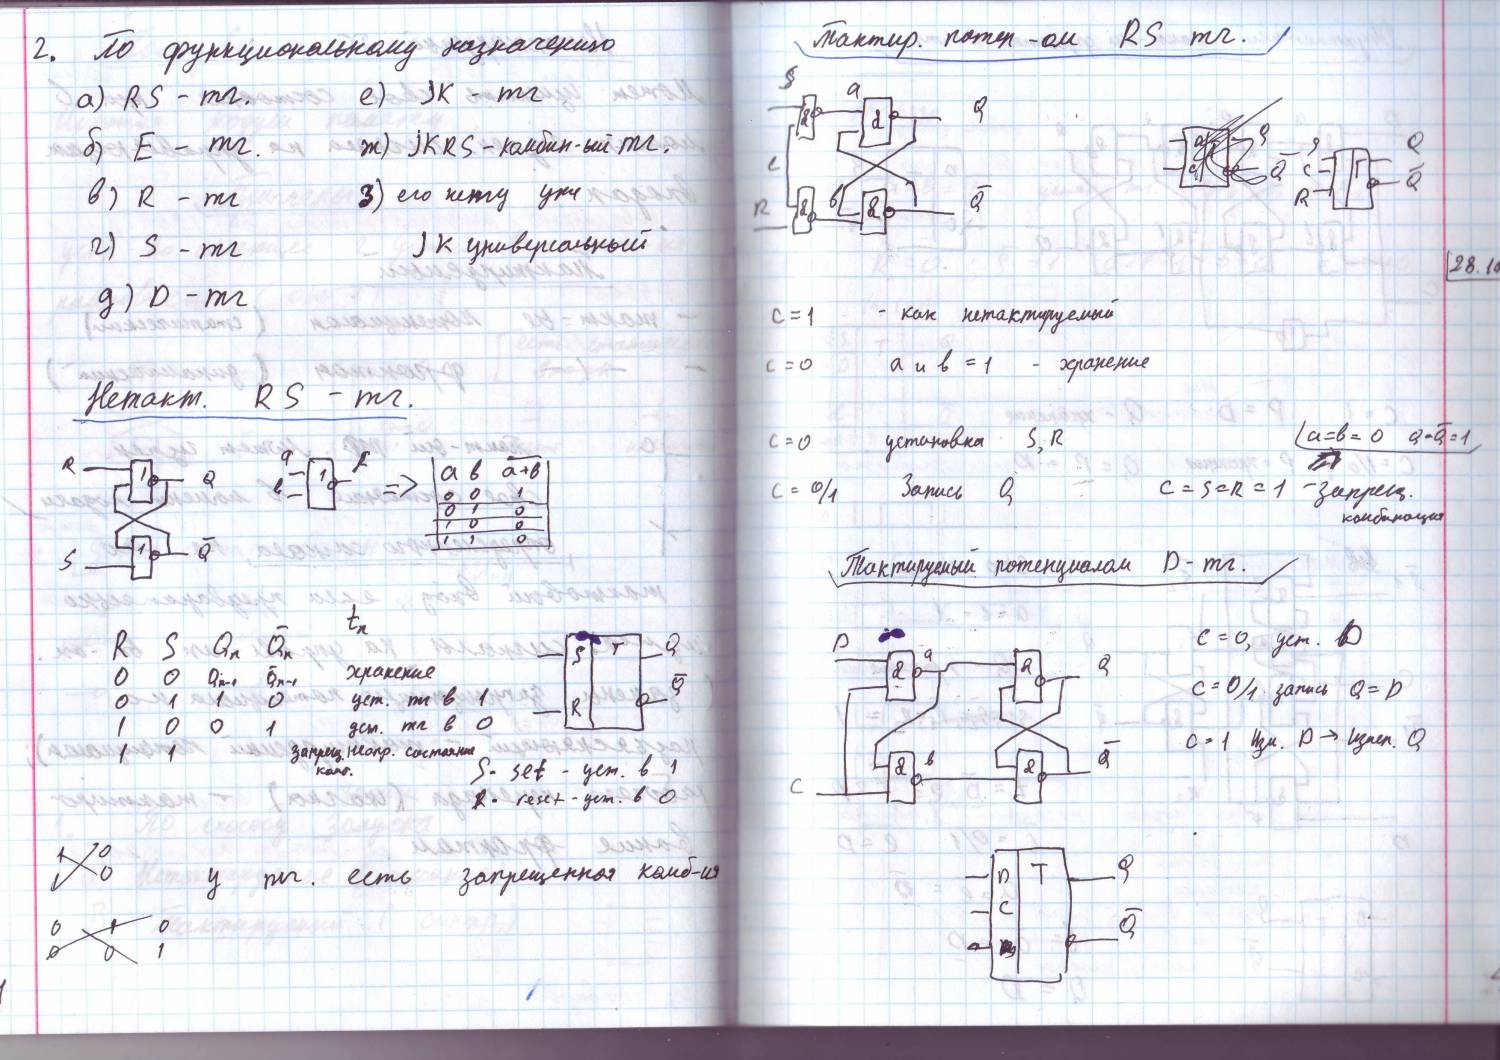 2. По функциональному назначению
а) RS - тг.
е) JK - тг
б) E - тг.
ж) JKRS - комбин-ый тг.
в) R - тг
з) его нету уже
г) S - тг
JK универсальный
д) D - тг
Нетакт. RS - тг.
R 1 Q
S 1 Q̅
a
в 1 f
=>
a в a+в
0 0 1
0 1 0
1 0 0
1 1 0
tn
R S Qn Q̅n
0 0 Qn-1 Q̅n-1 хранение
0 1 1 0 уст. тг в 1
1 0 0 1 уст. тг в 0
1 1 запрещ. неопр. состояние
комб.
S T Q
R Q̅
S - set - уст. в 1
R - reset - уст. в 0
1 0
0
у тг. есть запрещенная комб-ия
0 1 0
0 0 1
Тактир. потен-ом RS тг.
S & a & Q
C
R & в & Q̅
S T Q
C
R Q̅
28.10
C=1 - как нетактируемый
C=0 a и в = 1 - хранение
C=0 установка S, R
a=в=0 Q=Q̅=1
C=0/1 Запись Q
C=S=R=1 - Запрещ.
комбинация
Тактируемый потенциалом D-тг.
D & a & Q
C & в & Q̅
C=0, уст. D
C=0/1 запись Q=D
C=1 Изм. D → Измен. Q
D T Q
C
Q̅